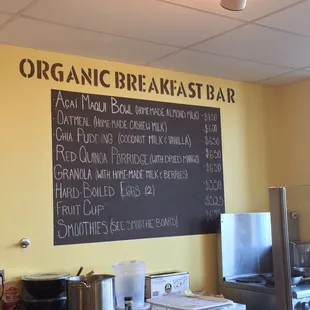 ORGANIC BREAKFAST BAR
AÇAI MAQUI BOWL (HOMEMADE ALMOND MILK)
OATMEAL (HOMEMADE CASHEW MILK)
CHIA PUDDING (COCONUT MILK & VANILLA)
RED QUINOA PORRIDGE (WITH DRIED MANGO)
GRANOLA (WITH HOMEMADE MILK & BERRIES)
HARD-BOILED EGGS (2)
FRUIT CUP
SMOOTHIES (SEE SMOOTHIE BOARD)